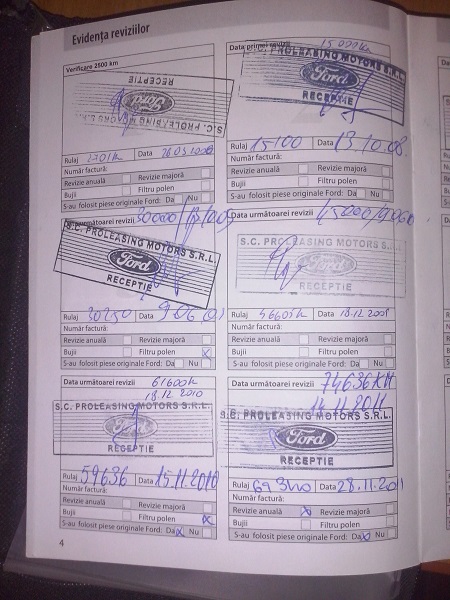 Evidența reviziilor
Verificare 2500 km
RECEPTIE
Ford
S.C. PROLEASING MOTORS S.R.L.
Rulaj Data
Număr factură:
Revizie anuală Revizie majoră
Bujii Filtru polen
S-au folosit piese originale Ford: Da Nu
Data primei revizii 15 000 K
S.C. PROLEASING MOTORS S.R.L.
Ford
RECEPTIE
Rulaj 15100 Data 13.10.08
Număr factură:
Revizie anuală Revizie majoră
Bujii Filtru polen
S-au folosit piese originale Ford: Da Nu
următoarei revizii 30000
S.C. PROLEASING MOTORS S.R.L.
Ford
RECEPTIE
Rulaj 30250 Data
Număr factură:
Revizie anuală Revizie majoră
Bujii Filtru polen x
S-au folosit piese originale Ford: Da Nu
Data următoarei revizii 45000
S.C. PROLEASING MOTORS S.R.L.
Ford
RECEPTIE
Rulaj Data 18.12.2009
Număr factură:
Revizie anuală Revizie majoră
Bujii Filtru polen
S-au folosit piese originale Ford: Da Nu
Data următoarei revizii 61600 K
18.12 2010
S.C. PROLEASING MOTORS S.R.L.
Ford
RECEPTIE
Rulaj 59636 Data 15.11.2010
Număr factură:
Revizie anuală Revizie majoră
Bujii Filtru polen x
S-au folosit piese originale Ford: Da x Nu
Data următoarei revizii 74636 KM
11.2011
S.C. PROLEASING MOTORS S.R.L.
Ford
RECEPTIE
Rulaj Data 28.11.2011
Număr factură:
Revizie anuală x Revizie majoră
Bujii Filtru polen
S-au folosit piese originale Ford: Da x Nu
4